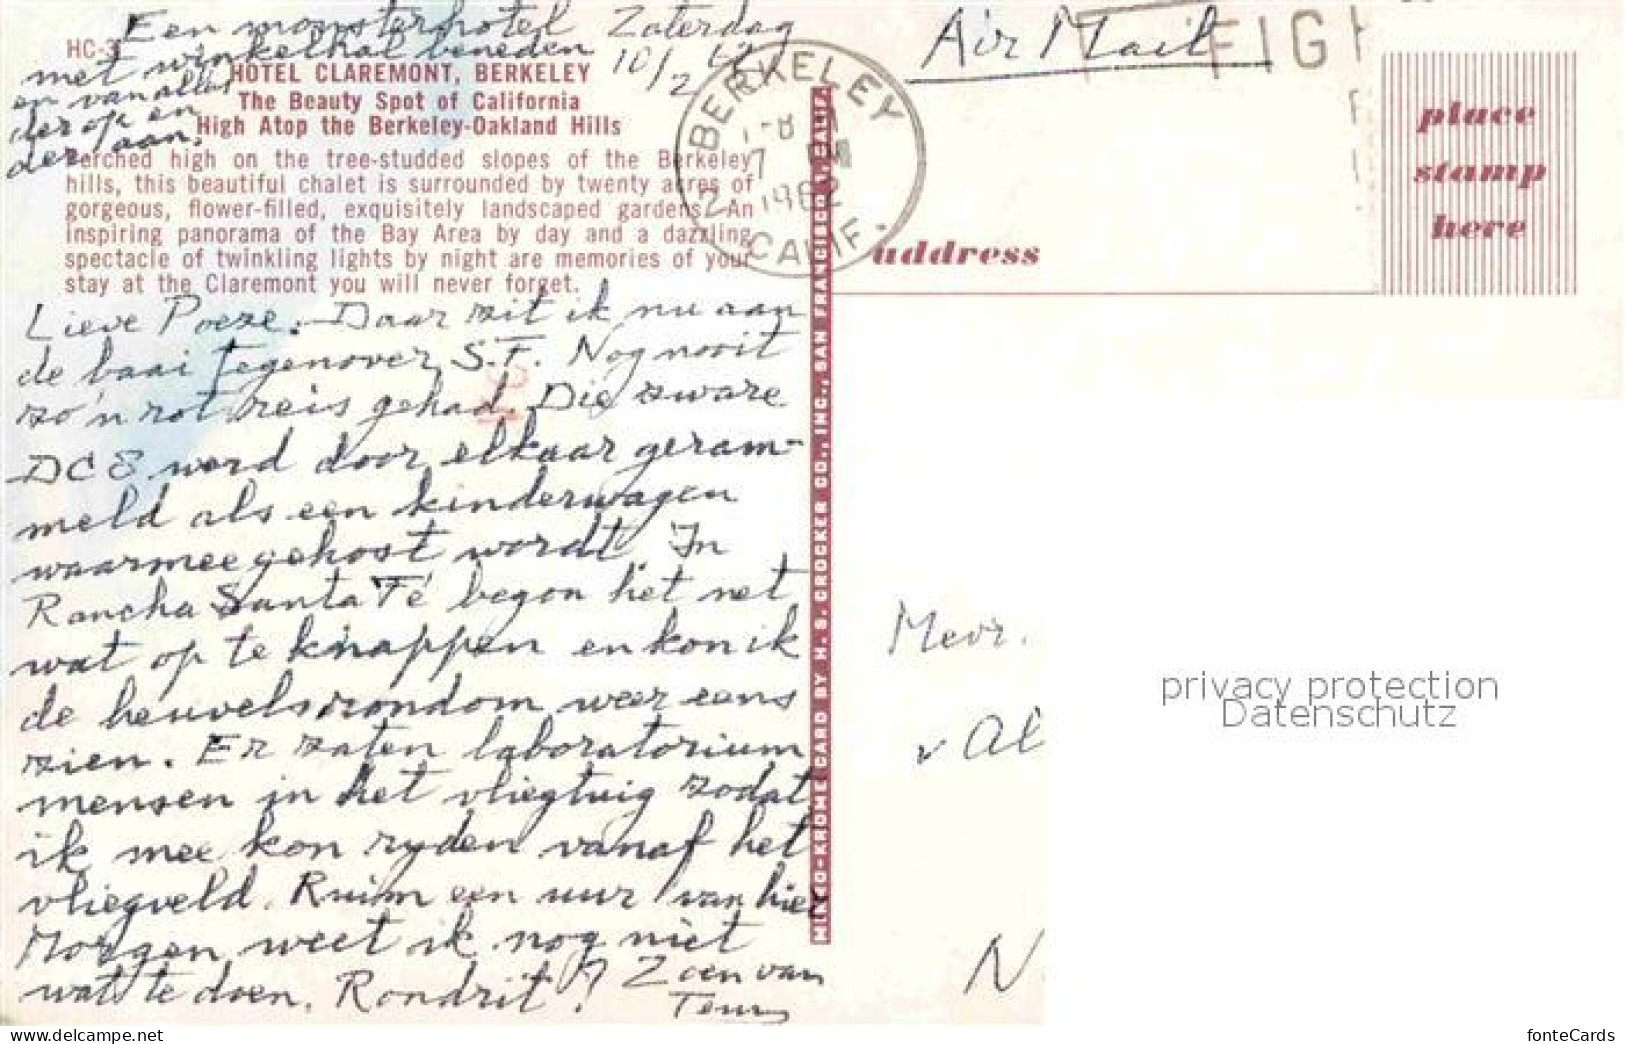 Een monsterhotel Zaterdag
met winkelhal beneden 10/2 62
en van alles
der op en
der aan.
HC-3
HOTEL CLAREMONT, BERKELEY
The Beauty Spot of California
High Atop the Berkeley-Oakland Hills
Perched high on the tree-studded slopes of the Berkeley
hills, this beautiful chalet is surrounded by twenty acres of
gorgeous, flower-filled, exquisitely landscaped gardens. An
inspiring panorama of the Bay Area by day and a dazzling
spectacle of twinkling lights by night are memories of your
stay at the Claremont you will never forget.
Lieve Poeze. Daar zit ik nu aan
de baai tegenover S.F. Nog nooit
zo'n rot reis gehad. Die zware
DC 8 werd door elkaar geram-
meld als een kinderwagen
waarmee gehost wordt. In
Rancha Santa Fé begon het net
wat op te knappen en kon ik
de heuvels rondom weer eens
zien. Er zaten laboratorium
mensen in het vliegtuig zodat
ik mee kon ryden vanaf het
vliegveld. Ruim een uur van hier
Morgen weet ik nog niet
wat te doen. Rondrit? Zoen van
Teun
BERKELEY
7 PM
1962
CALIF.
MIRRO-KROME CARD BY H. S. CROCKER CO., INC., SAN FRANCISCO 1, CALIF.
Air Mail
FIGH
place
stamp
here
address
Mevr.
v Al
N
privacy protection
Datenschutz
fonteCards